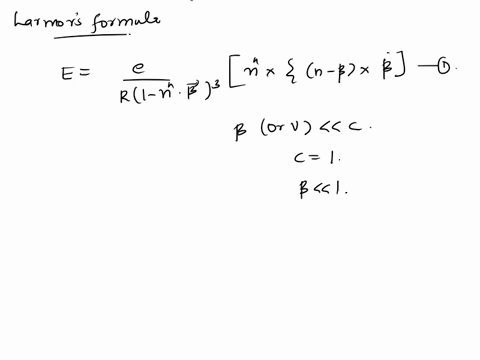 Larmor's formula
E = e / R(1 - n̂ · β⃗)³ [ n̂ × { (n - β) × β̇ ] — ①.
β (or v) << c.
c = 1.
β << 1.